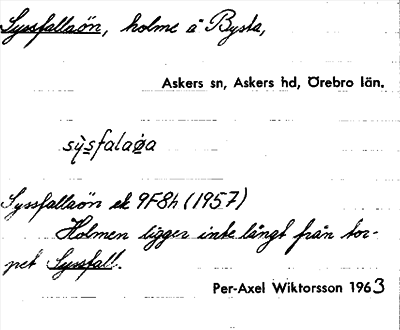 Syssfallaön, holme å Bysta,
Askers sn, Askers hd, Örebro län.
sỳsfalaøa
Syssfallaön ek 9F8h (1957)
Holmen ligger inte långt från tor-
pet Syssfall.
Per-Axel Wiktorsson 1963